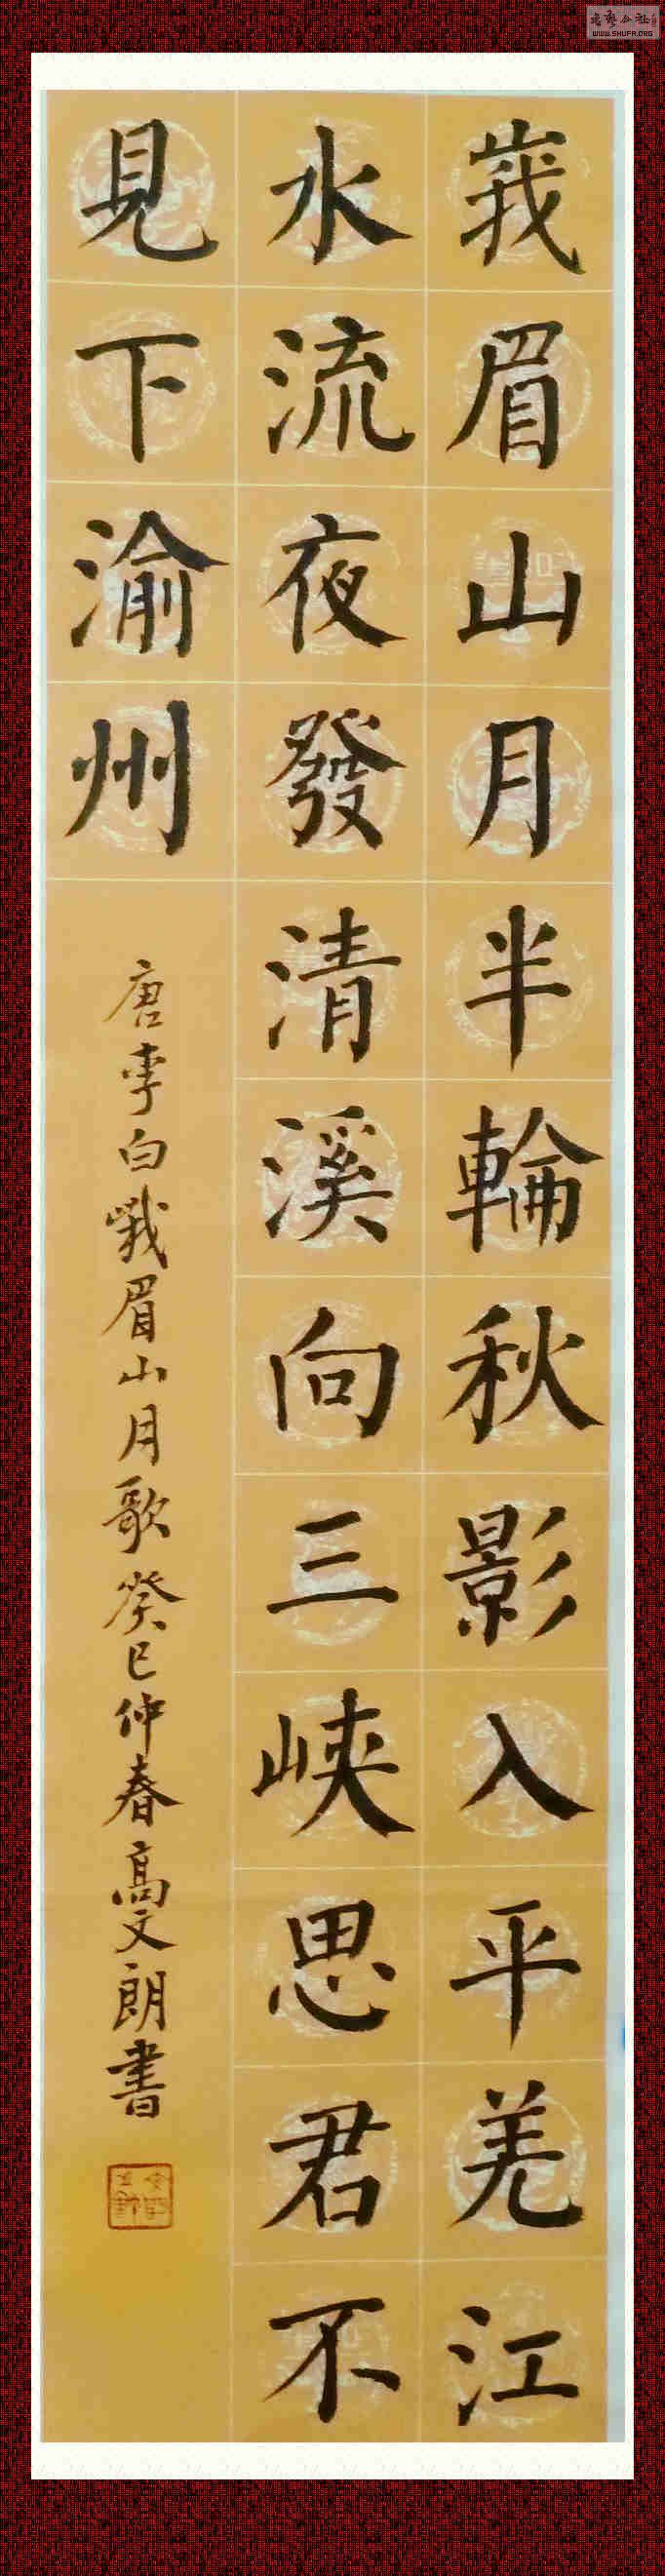 峩眉山月半輪秋影入平羌江
水流夜發清溪向三峡思君不
見下渝州
唐李白峨眉山月歌 癸巳仲春高文朗書
WWW.SHUFA.ORG